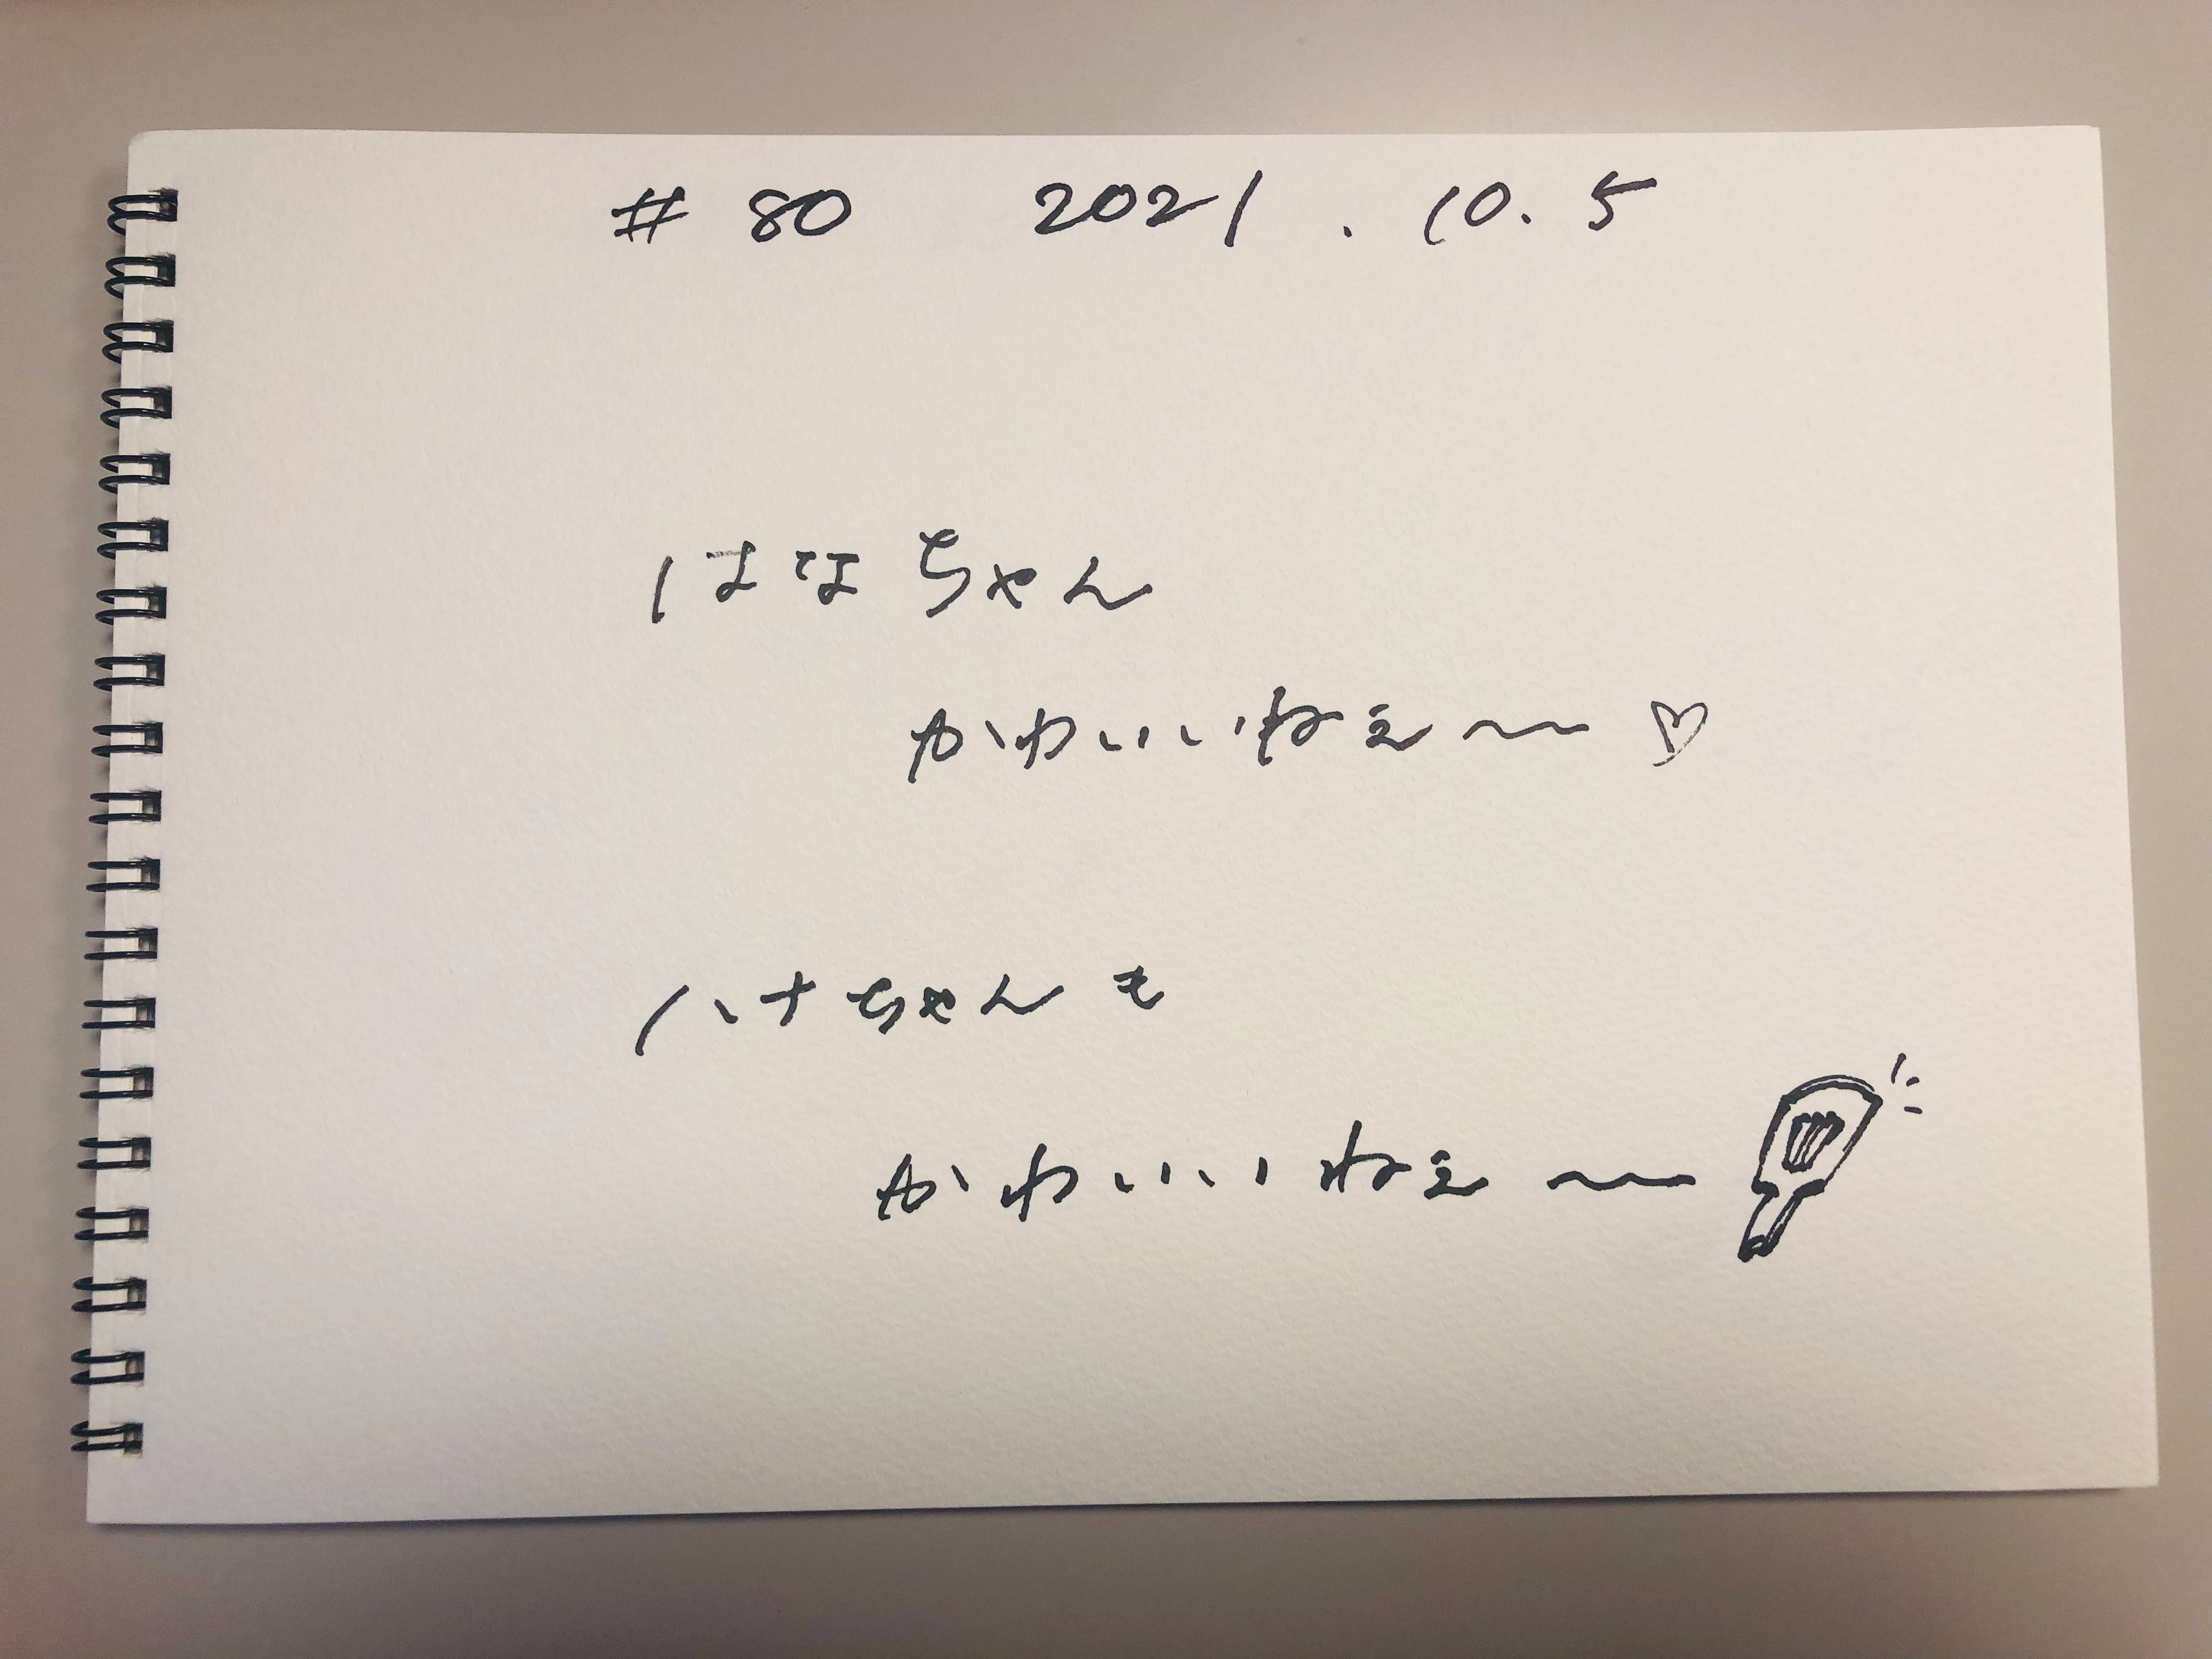 # 80 2021 . 10. 5
はなちゃん
かわいいねぇ〜〜♡
ハナちゃんも
かわいいねぇ〜〜